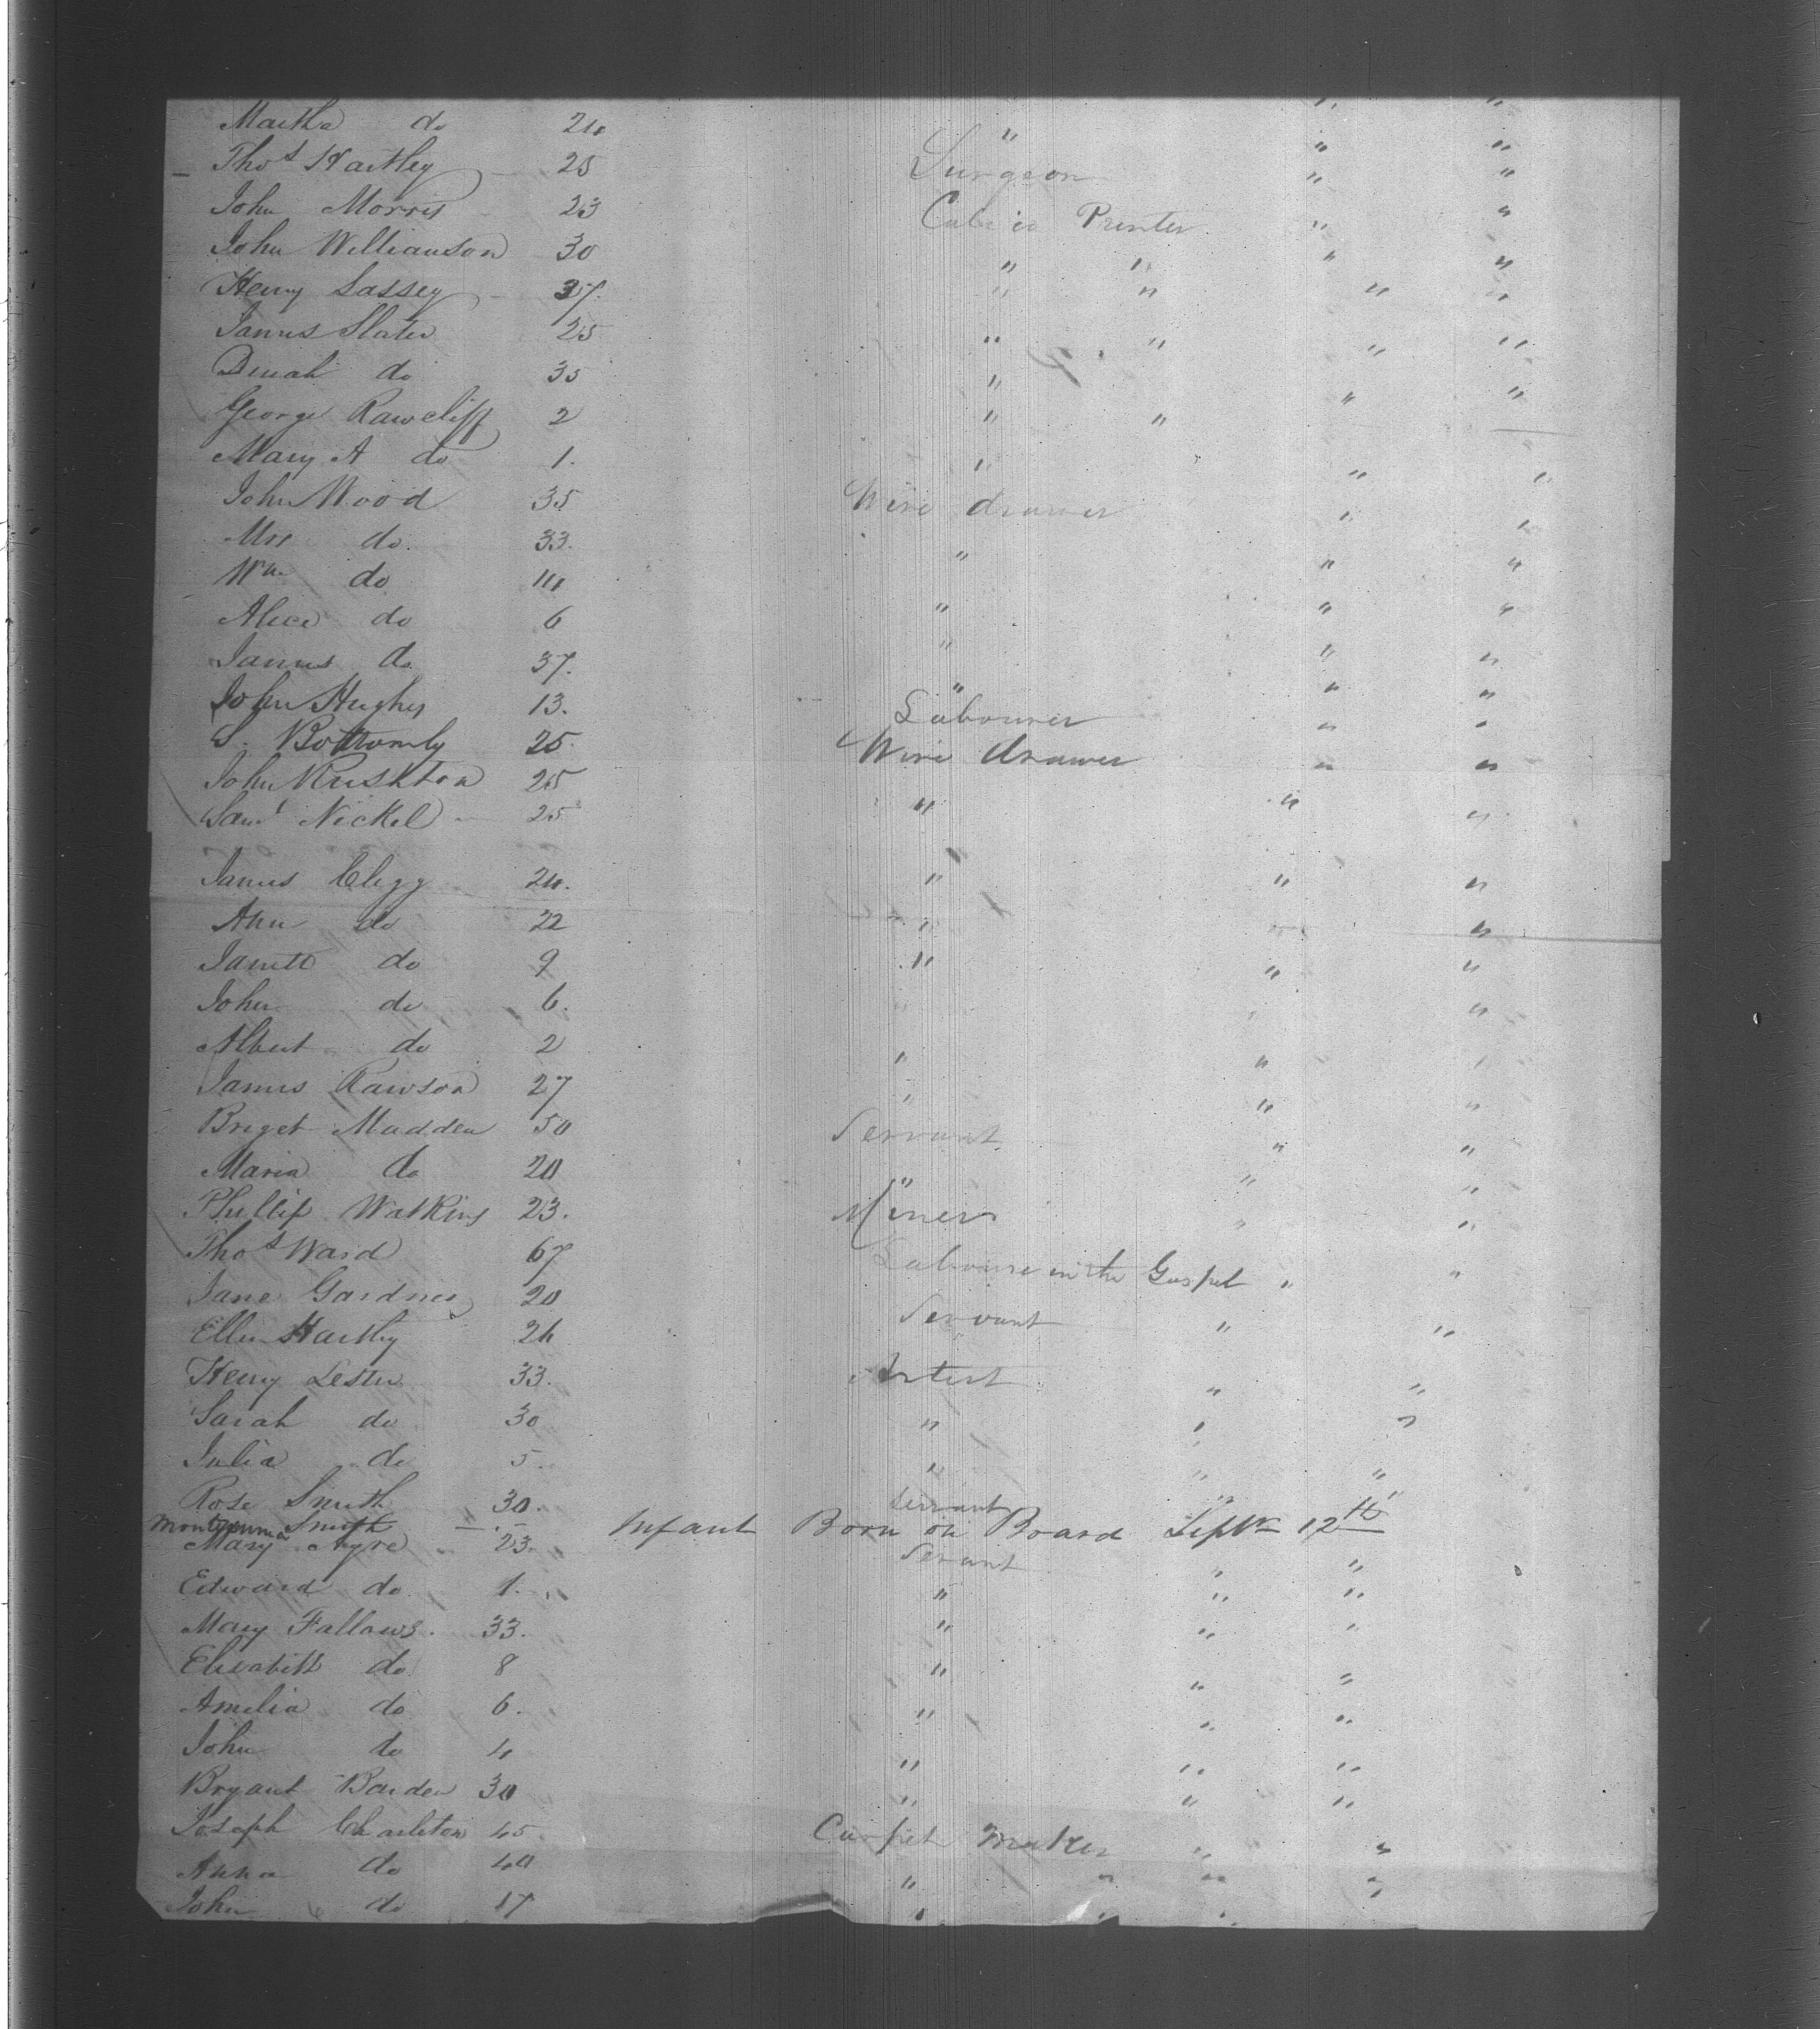 Martha do 24 " " "
Thos Hartley 25 Surgeon " "
John Morris 23 Calico Printer " "
John Williamson 30 " " " "
Henry Sassey 37. " " " "
James Slater 25 " " " "
Dinah do 35 " " "
George Rawcliff 2 " "
Mary A do 1. " " "
John Wood 35 Wire drawer " "
Mrs do. 33. " " "
Wm do 14 " " "
Alice do 6 " " "
James do. 37. " " "
John Hughes 13. Labourer " "
S. Bottomly 25. Wire drawer " "
John Rushton 25 " " "
Saml Nickel 25
James Clegg 24. " " "
Ann do 22 " " "
Jamett do 9 " " "
John do 6. " " "
Albert do 2 " " "
James Rawson 27 " " "
Briget Madden 50 Servant " "
Maria do 20 " " "
Phillip Watkins 23. Miner " "
Thos Ward 67 Laboure in the Gospel " "
Jane Gardner 20 Servant " "
Ellen Hartley 26
Henry Lester 33. Artist " "
Sarah do 30 " " "
Julia do 5. " " "
Rose Smith 30. Servant "
Smith Infant Born on Board Septr 12th
Mary Ayre 23. Servant " "
Edward do. 1. " " "
Mary Fallows. 33. " " "
Elisabeth do 8 " " "
Amelia do 6. " " "
John do 4 " " "
Bryant Barden 30 " " "
Joseph Charleton 45 Carpet Maker " "
Anna do 40 " " " "
John do 17 " " "